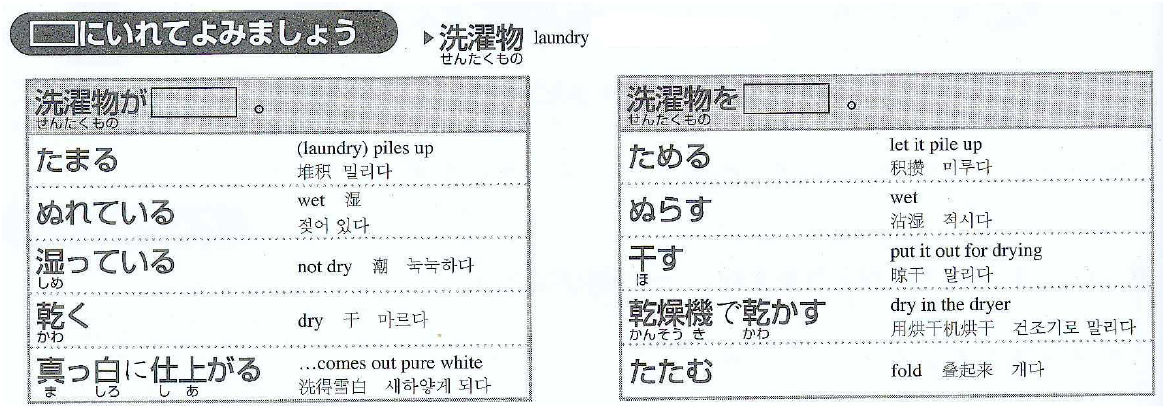 にいれてよみましょう
▶洗濯物 laundry
せんたくもの
洗濯物が 。
せんたくもの
たまる (laundry) piles up
堆积 밀리다
ぬれている wet 湿
젖어 있다
湿っている not dry 潮 눅눅하다
しめ
乾く dry 干 마르다
かわ
真っ白に仕上がる …comes out pure white
ま しろ し あ 洗得雪白 새하얗게 되다
洗濯物を 。
せんたくもの
ためる let it pile up
积攒 미루다
ぬらす wet
沾湿 적시다
干す put it out for drying
ほ 晾干 말리다
乾燥機で乾かす dry in the dryer
かんそうき かわ 用烘干机烘干 건조기로 말리다
たたむ fold 叠起来 개다